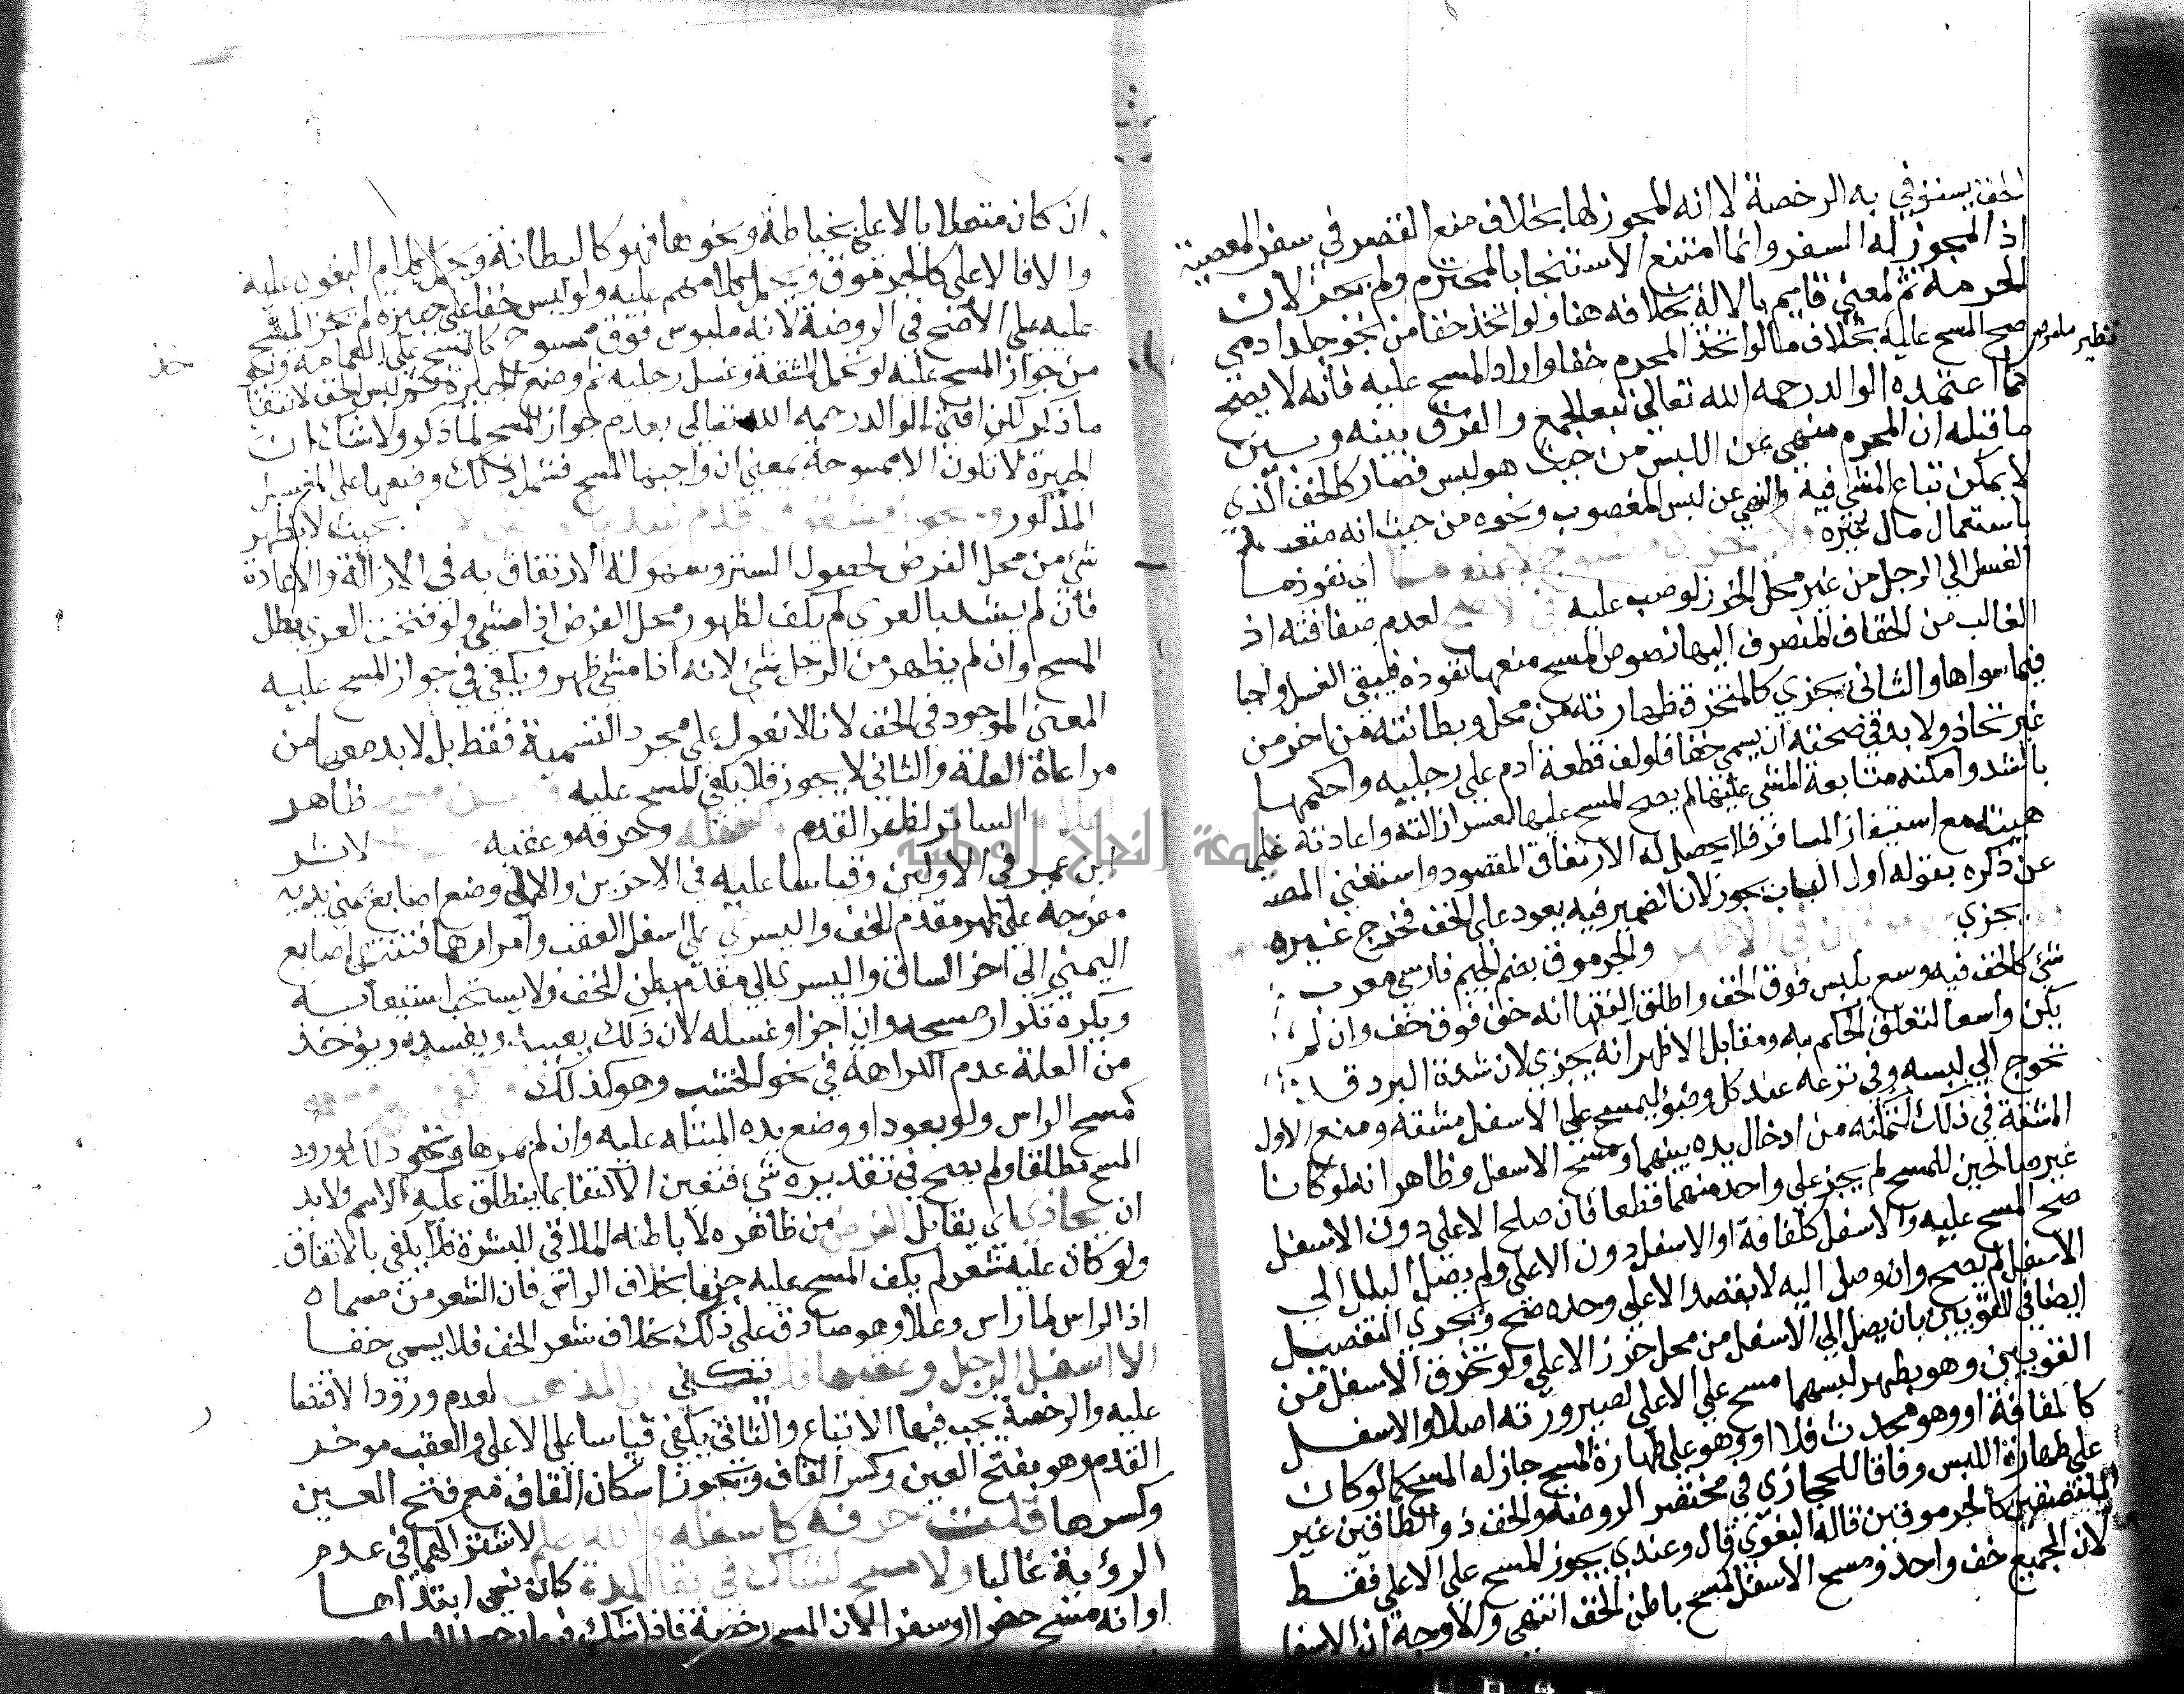 الخف يستوفي به الرخصة لا انه المجوز لها بخلاف منع القصر في سفر المعصية
اذ المجوز له السفر وانما امتنع الاستنجا بالمحترم ولم يجز لان
الحرمة ثم لمعني قايم بالالة بخلافه هنا ولو اتخذ خفا من نحو جلد ادمي
صح المسح عليه بخلاف ما لو اتخذ المحرم خفا واراد المسح عليه فانه لا يصح
نظير ما مر
كما اعتمده الوالد رحمه الله تعالي تبعا لجمع والفرق بينه وبين
ما قبله ان المحرم منهي عن اللبس من حيث هو لبس فصار كالخف الذي
لا يمكن تتابع المشي فيه والنهي عن لبس المغصوب ونحوه من حيث انه متعد
باستعمال مال غيره ولا يجزي منسوج لا يمنع ما اي نفوذ ما
الغسل الي الرجل من غير محل الخرز لو صب عليه في الاصح لعدم صفاقته اذ
الغالب من الخفاف المنصرف اليها نصوص المسح منعها نفوذه فيبقي الغسل واجبا
فيما سواها والثاني يجزي كالمتخرق ظهارته من محل وبطانته من اخر من
غير تحاذ ولا بد في صحته ان يسمي خفا فلو لف قطعة ادم علي رجليه واحكمها
بالشد وامكنه متابعة المشي عليها لم يصح المسح عليها لعسر ازالته واعادته علي
هيئته مع استيفاز المسافر فلا يحصل له الارتفاق المقصود واستغني المص
عن ذكره بقوله اول الباب يجوز لان الضمير فيه يعود علي الخف فخرج غيره
يجزي في الاظهر والجرموق بضم الجيم فارسي معرب
شي كالخف فيه وسع يلبس فوق الخف واطلق الفقها انه خف فوق خف وان لم
يكن واسعا لتعلق الحكم به ومقابل الاظهر انه يجزي لان شدة البرد قد
تحوج الي لبسه وفي نزعه عند كل وضؤ ليمسح علي الاسفل مشقة ومنع الاول
المشقة في ذلك لتمكنه من ادخال يده بينهما ومسح الاسفل وظاهر انه لو كانا
غير صالحين للمسح لم يجز علي واحد منهما قطعا فان صلح الاعلي دون الاسفل
صح المسح عليه والاسفل كلفافة او الاسفل دون الاعلي ولم يصل البلل الي
الاسفل لم يصح وان وصل اليه لا بقصد الاعلي وحده صح ويجري التفصيل
ايضا في القويين بان يصل الي الاسفل من محل خرز الاعلي ولو تخرق الاسفل من
القويين وهو بطهر لبسهما مسح علي الاعلي لصيرورته اصلا والاسفل
كالفافة او وهو محدث فلا او وهو علي طهارة المسح جاز له المسح كما لو كان
علي طهارة اللبس وفاقا للحجازي في مختصر الروضة والخف ذو الطاقين غير
الملتصقين كالجرموقين قاله البغوي قال وعندي يجوز المسح علي الاعلي فقط
لان الجميع خف واحد فمسح الاسفل كمسح باطن الخف انتهي والاوجه ان الاسفل
ان كان متصلا بالاعلي بخياطة ونحوها فهو كالبطانة ويحمل كلام البغوي عليه
والا فالاعلي كالجرموق ويحمل كلامهم عليه ولو لبس خفا علي جبيرة لم يجز المسح
عليه علي الاصح في الروضة لانه ملبوس فوق ممسوح كالمسح علي العمامة ويؤخذ
من جواز المسح عليه لو تحمل المشقة وغسل رجليه ثم وضع الجبيرة ثم لبس الخف لانتفا
ما ذكر لكن افتي الوالد رحمه الله تعالي بعدم جواز المسح لما ذكر ولا شك ان
الجبيرة لا تكون الا ممسوحة بمعني ان واجبها المسح فشمل ذلك وضعها علي المغسول
المذكور ويجوز مشقوق قدم شد بحيث لا يظهر
شي من محل الفرض لحصول الستر وسهولة الارتفاق به في الازالة والاعادة
فان لم يشد بالعري لم يكف لظهور محل الفرض اذا مشي ولو فتحت العري بطل
المسح وان لم يظهر من الرجل شي لانه اذا مشي ظهر ويكفي في جواز المسح عليه
المعني الموجود في الخف لانا لا نعول علي مجرد التسمية فقط بل لا بد معها من
مراعاة العلة والثاني لا يجوز فلا يكفي المسح عليه ويسن مسح ظاهر
الساتر لظهر القدم واسفله وحرفه وعقبه لاثر
ابن عمر في الاولين وقياسا عليه في الاخرين والاولي وضع اصابع يمني يديه
مفرجة علي ظهر مقدم الخف واليسري علي اسفل العقب وامرارهما فتنتهي اصابع
اليمني الي اخر الساق واليسري الي مقدم بطن الخف ولا يستحب استيعابه
ويكره تكرار مسحه وان اجزا وغسله لان ذلك يعيبه ويفسده ويؤخذ
من العلة عدم الكراهة في نحو الخشب وهو كذلك ويكفي مسمي
كمسح الراس ولو بعود او وضع يده المبتلة عليه وان لم يمرها ونحو ذلك لورود
المسح مطلقا ولم يصح في تقديره شي فتعين الاكتفا بما ينطلق عليه الاسم ولا بد
ان يحاذي اي يقابل الفرض من ظاهره لا باطنه الملاقي للبشرة فلا يكفي بالاتفاق
ولو كان عليه شعر لم يكف المسح عليه جزما بخلاف الراس فان الشعر من مسماه
اذ الراس لما راس وعلا وهو صادق علي ذلك بخلاف شعر الخف فلا يسمي خفا
الا اسفل الرجل وعقبها فلا يكفي علي المذهب لعدم ورود الاقتصار
عليه والرخصة يجب فيها الاتباع والثاني يكفي قياسا علي الاعلي والعقب موخر
القدم وهو بفتح العين وكسر القاف ويجوز اسكان القاف مع فتح العين
وكسرها قلت حرفه كاسفله والله اعلم لاشتراكهما في عدم
الرؤية غالبا ولا مسح لشاك في بقا المدة كان نسي ابتداها
او انه مسح حضرا او سفرا لان المسح رخصة فاذا شك
جامعة النجاح الوطنية